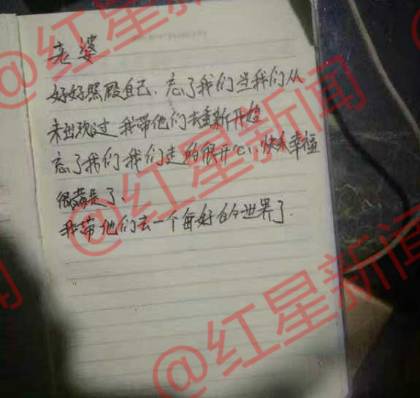 老婆
好好照顾自己、忘了我们当我们从
未出现过 我带他们去重新开始
忘了我们 我们走的很开心、快乐幸福
很满足了、
我带他们去一个每好的世界了.
@红星新闻
@红星新闻
@红星新闻